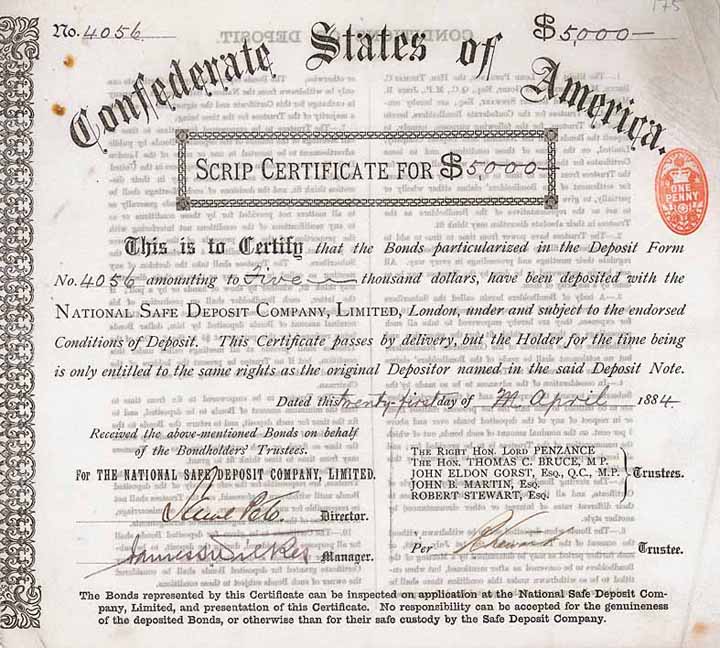 No. 4056
$5,000
175
Confederate States of America.
SCRIP CERTIFICATE FOR $5,000
ONE
PENNY
This is to Certify that the Bonds particularized in the Deposit Form
No. 4056 amounting to Five thousand dollars, have been deposited with the
NATIONAL SAFE DEPOSIT COMPANY, LIMITED, London, under and subject to the endorsed
Conditions of Deposit. This Certificate passes by delivery, but the Holder for the time being
is only entitled to the same rights as the original Depositor named in the said Deposit Note.
Dated this twenty first day of April 1884
Received the above-mentioned Bonds on behalf
of the Bondholders' Trustees.
For THE NATIONAL SAFE DEPOSIT COMPANY, LIMITED.
Director.
Manager.
THE RIGHT HON. LORD PENZANCE
THE HON. THOMAS C. BRUCE, M.P.
JOHN ELDON GORST, ESQ., Q.C., M.P.
JOHN B. MARTIN, ESQ.
ROBERT STEWART, ESQ.
Trustees.
Per Trustee.
The Bonds represented by this Certificate can be inspected on application at the National Safe Deposit Com-
pany, Limited, and presentation of this Certificate. No responsibility can be accepted for the genuineness
of the deposited Bonds, or otherwise than for their safe custody by the Safe Deposit Company.